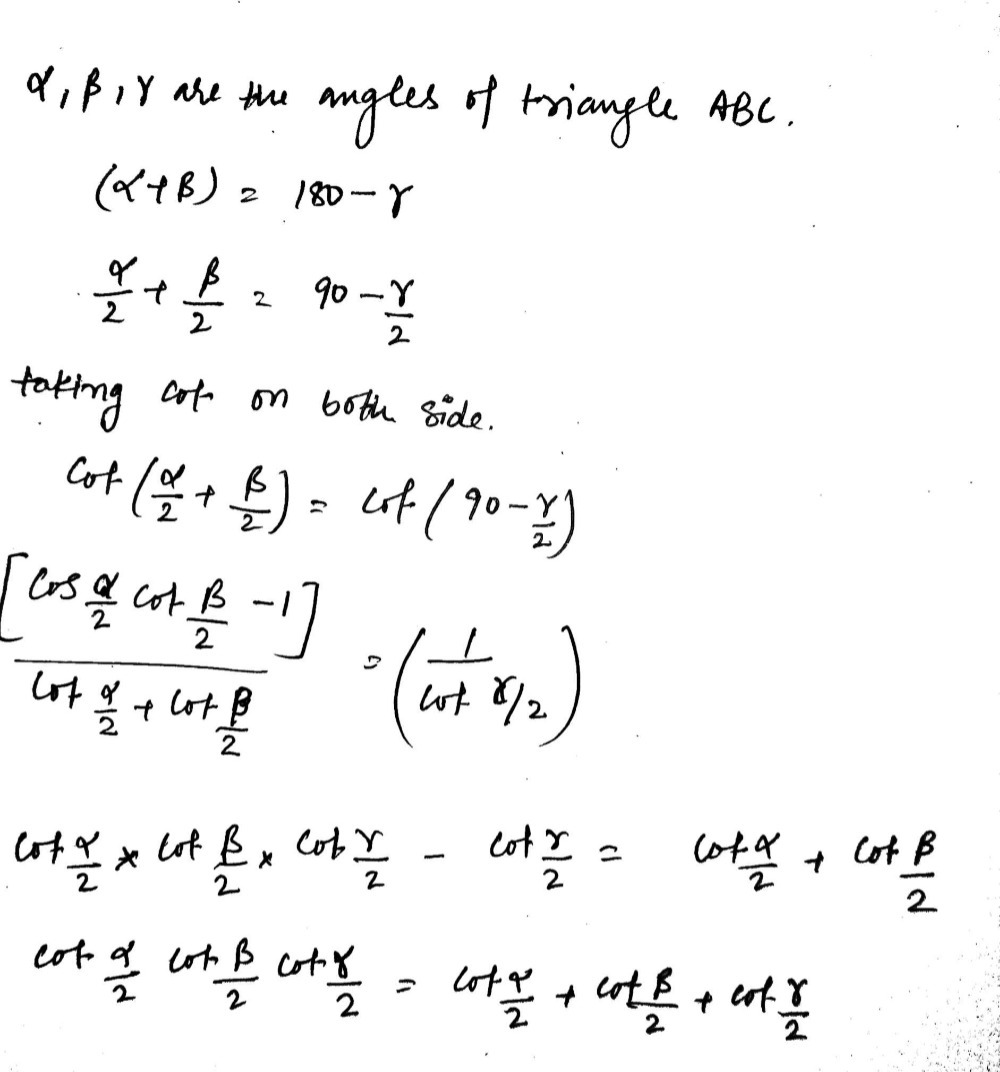 α, β, γ are the angles of triangle ABC.
(α+β) = 180 - γ
α/2 + β/2 = 90 - γ/2
taking cot on both side.
Cot (α/2 + β/2) = cot (90 - γ/2)
[Cos α/2 cot β/2 - 1] / (Cot α/2 + Cot β/2) = (1 / cot γ/2)
Cot α/2 * Cot β/2 * Cot γ/2 - cot γ/2 = cot α/2 + cot β/2
cot α/2 cot β/2 cot γ/2 = cot α/2 + cot β/2 + cot γ/2